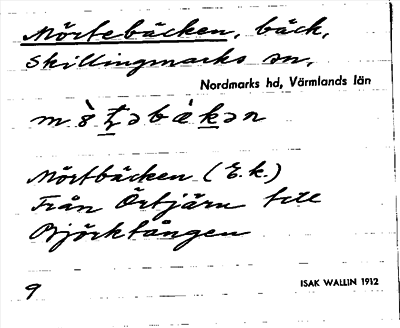 Mörtebäcken, bäck,
Skillingmarks sn,
Nordmarks hd, Värmlands län
Mörtbäcken (E.k.)
Från Örtjärn till
Björktången
9
ISAK WALLIN 1912